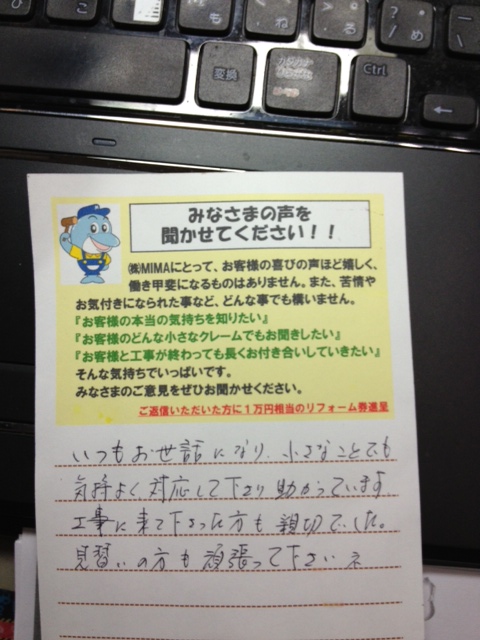 ひ
こ
も
ね
る
?
・ め
変換
カタカナ
ひらがな
Ctrl
←
みなさまの声を
聞かせてください！！
㈱MIMAにとって、お客様の喜びの声ほど嬉しく、
働き甲斐になるものはありません。また、苦情や
お気付きになられた事など、どんな事でも構いません。
『お客様の本当の気持ちを知りたい』
『お客様のどんな小さなクレームでもお聞きしたい』
『お客様と工事が終わっても長くお付き合いしていきたい』
そんな気持ちでいっぱいです。
みなさまのご意見をぜひお聞かせください。
ご返信いただいた方に１万円相当のリフォーム券進呈
いつもお世話になり、小さなことでも
気持よく対応して下さり助かっています。
工事に来て下さった方も親切でした。
見習いの方も頑張って下さいネ